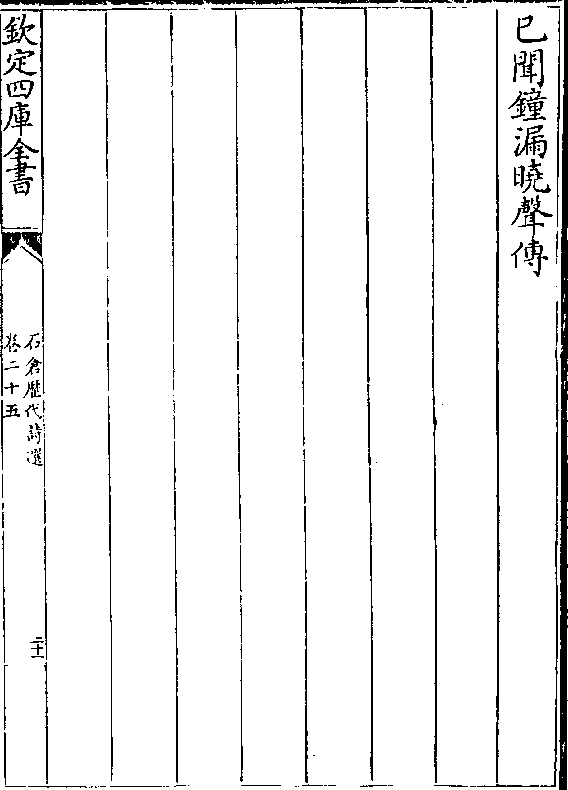 已聞鐘漏曉聲傳
欽定四庫全書
石倉歷代詩選
卷二十五
二十一